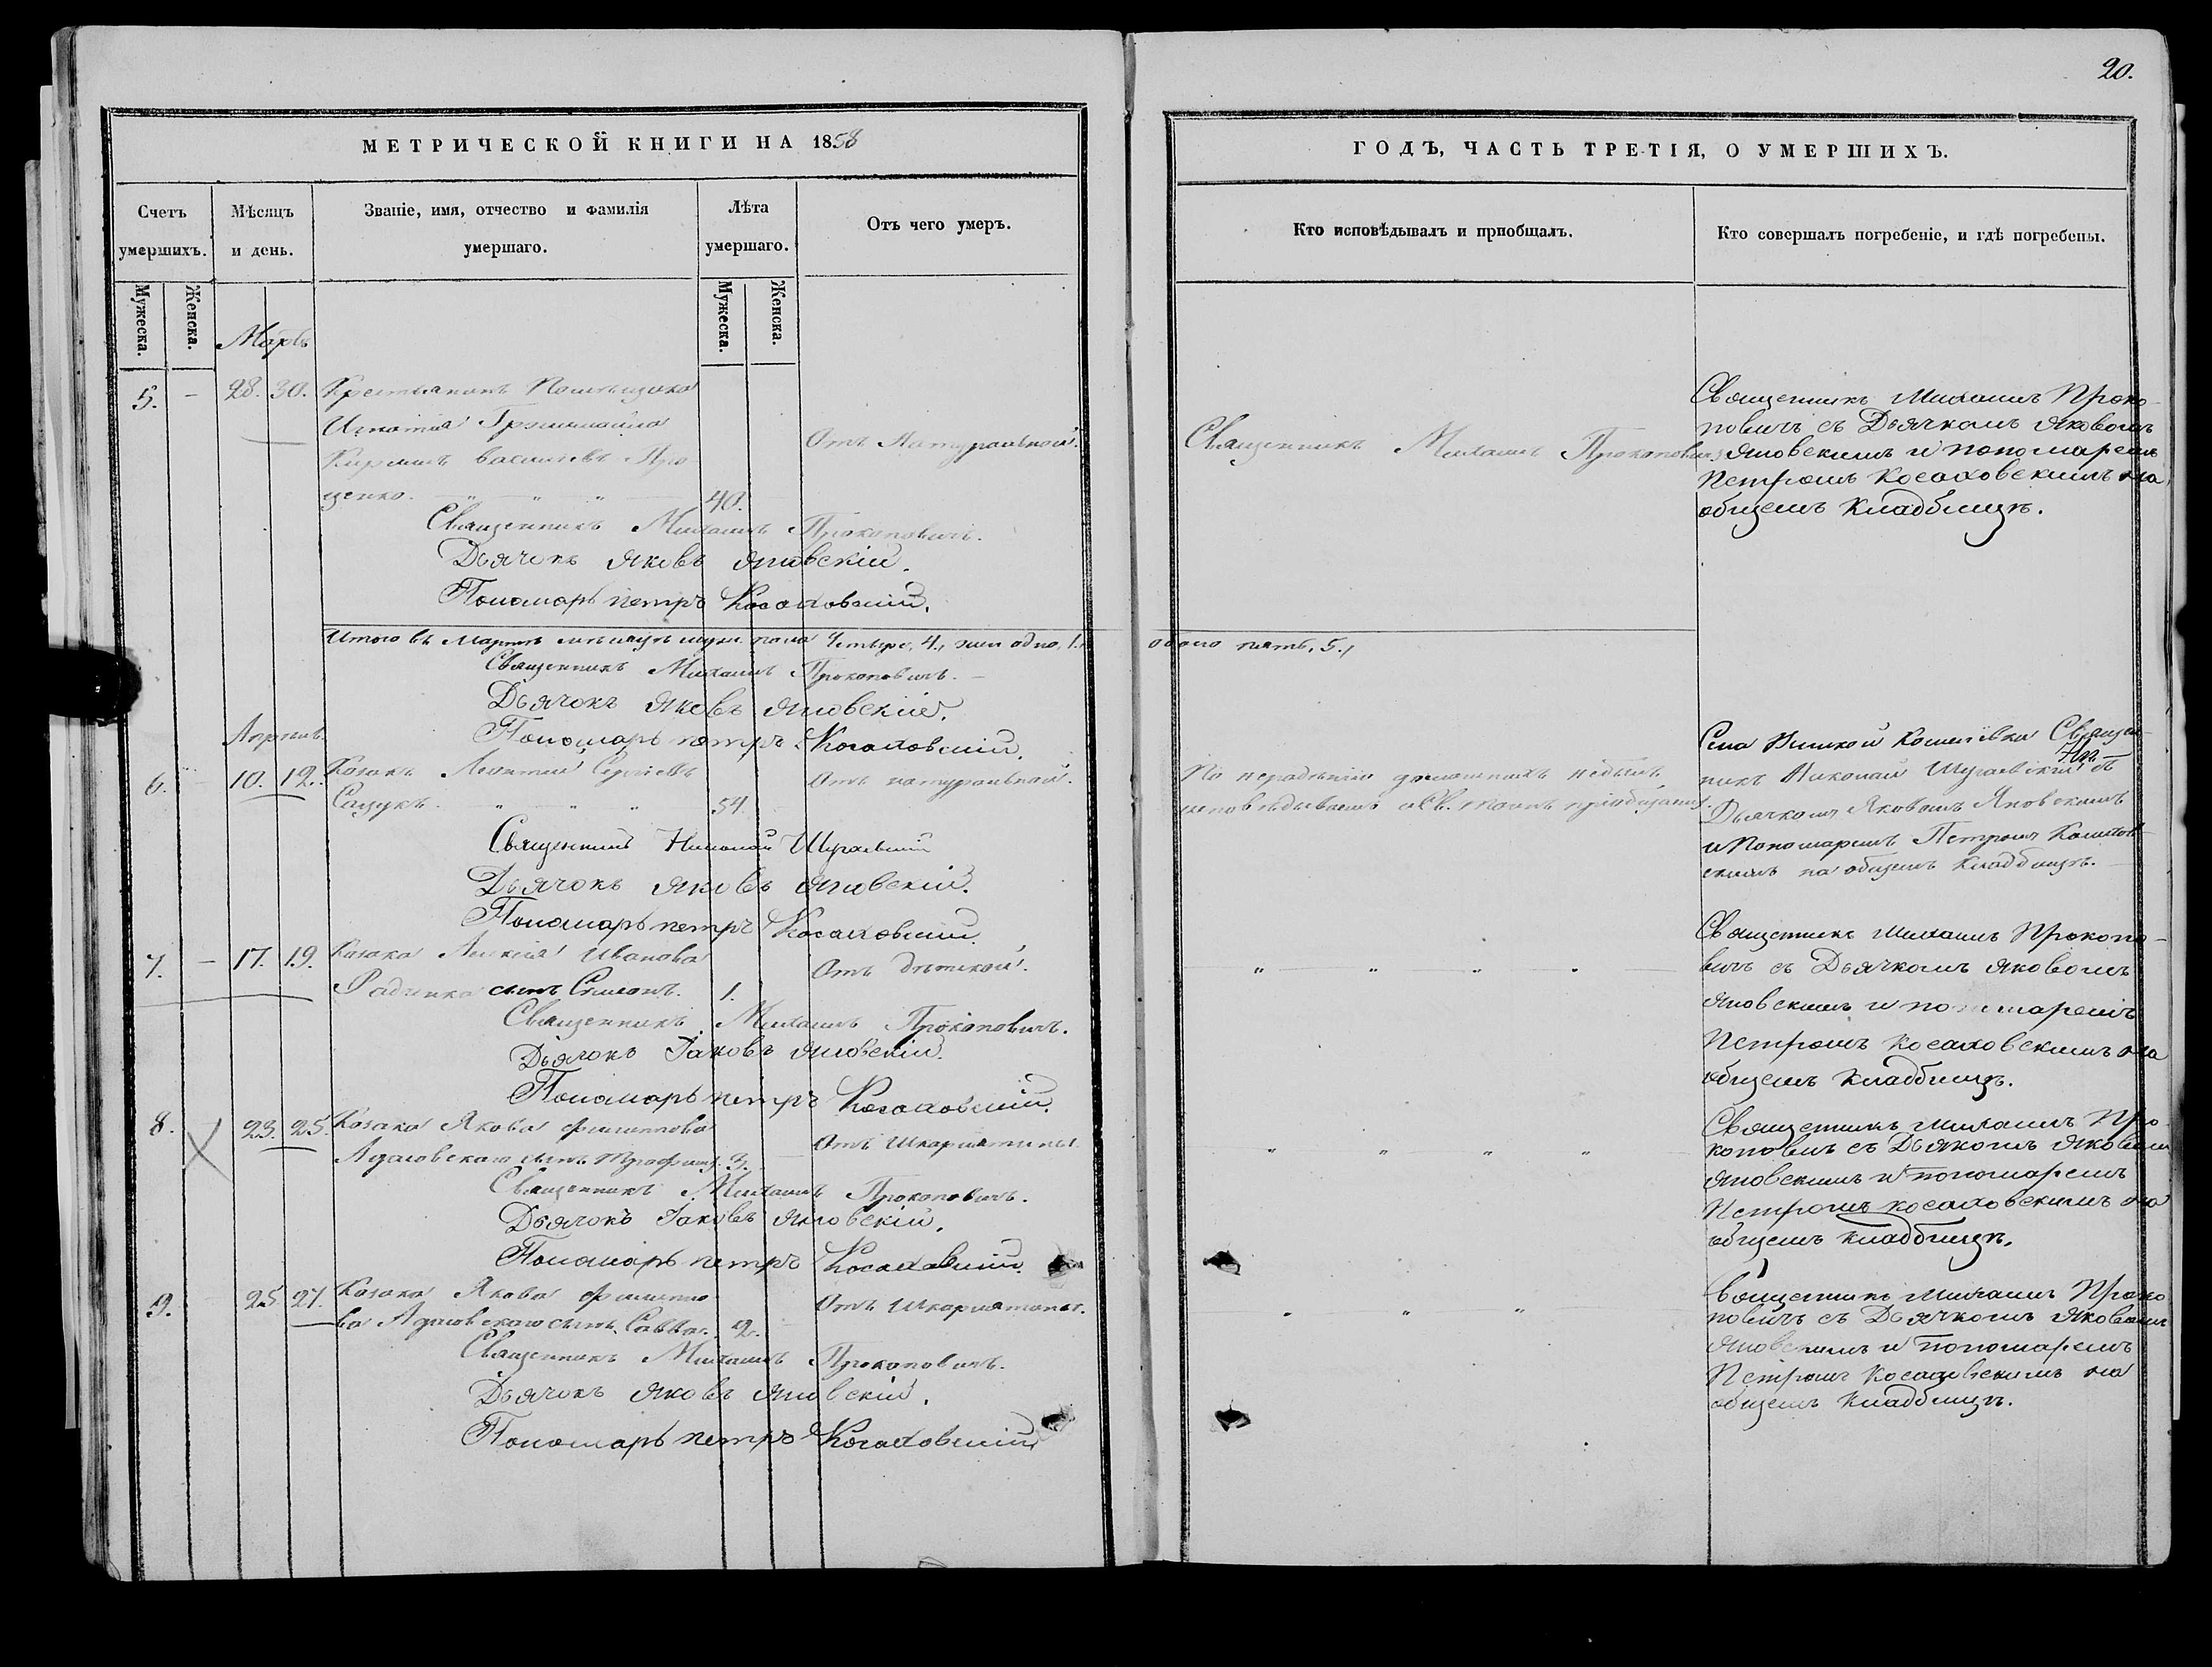 20.
МЕТРИЧЕСКОЙ КНИГИ НА 1858
ГОДЪ, ЧАСТЬ ТРЕТІЯ, О УМЕРШИХЪ.
Счетъ умершихъ.
Мѣсяцъ и день.
Званіе, имя, отчество и фамилія умершаго.
Лѣта умершаго.
Отъ чего умеръ.
Кто исповѣдывалъ и пріобщалъ.
Кто совершалъ погребеніе, и гдѣ погребены.
Мужеска.
Женска.
Мужеска.
Женска.
Мартъ
5. - 28. 30. Крестьянинъ Помѣщика
Игнатія
Кирилъ Васильевъ Про
ценко. 40.
Отъ Натуральной.
Священникъ Михаилъ Прокоповичъ
Священникъ Михаилъ Проко-
повичъ съ Дьячкомъ Яковомъ
Яновскимъ и пономаремъ
Петромъ Косаховскимъ на
общемъ кладбищѣ.
Священникъ Михаилъ Прокоповичъ.
Дьячокъ Яковъ Яновскій.
Пономарь Петръ Косаховскій.
Итого въ Мартѣ мѣсяцѣ муж. пола Четыре, 4., жен одно, 1.,
обоего пять, 5.,
Священникъ Михаилъ Прокоповичъ.
Дьячокъ Яковъ Яновскій.
Пономарь Петръ Косаховскій.
Апрѣль.
6. - 10. 12. Козакъ Леонтій Сергіевъ
54.
Отъ натуральной.
По нерадѣнію домашнихъ небылъ
исповѣдываемъ и Св. таинъ пріобщаемъ.
Села Кошелівка Священ-
никъ Николай съ
Дьячкомъ Яковомъ Яновскимъ
и Пономаремъ Петромъ Косахов-
скимъ на общемъ кладбищѣ.
Священникъ Николай
Дьячокъ Яковъ Яновскій.
Пономарь Петръ Косаховскій.
7. - 17. 19. Козака Алексія Иванова
Радченка сынъ Симонъ. 1.
Отъ дѣтской.
" " " "
Священникъ Михаилъ Прокопо-
вичъ съ Дьячкомъ Яковомъ
Яновскимъ и пономаремъ
Петромъ Косаховскимъ на
общемъ кладбищѣ.
Священникъ Михаилъ Прокоповичъ.
Дьячокъ Іаковъ Яновскій.
Пономарь Петръ Косаховскій.
8. 23. 25. Козака Якова Филиппова
Адамовскаго сынъ Трофимъ. 3.
Отъ Шкарлятины.
" " " "
Священникъ Михаилъ Про
коповичъ съ Дьякомъ Яковомъ
Яновскимъ и пономаремъ
Петромъ Косаховскимъ на
общемъ кладбищѣ.
Священникъ Михаилъ Прокоповичъ.
Дьячокъ Іаковъ Яновскій.
Пономарь Петръ Косаховскій.
9. 25. 27. Козака Якова Филиппо
ва Адамовскаго сынъ Савва. 2.
Отъ Шкарлятины.
" " "
Священникъ Михаилъ Проко
повичъ съ Дьячкомъ Яковомъ
Яновскимъ и пономаремъ
Петромъ Косаховскимъ на
общемъ кладбищѣ.
Священникъ Михаилъ Прокоповичъ.
Дьячокъ Яковъ Яновскій.
Пономарь Петръ Косаховскій